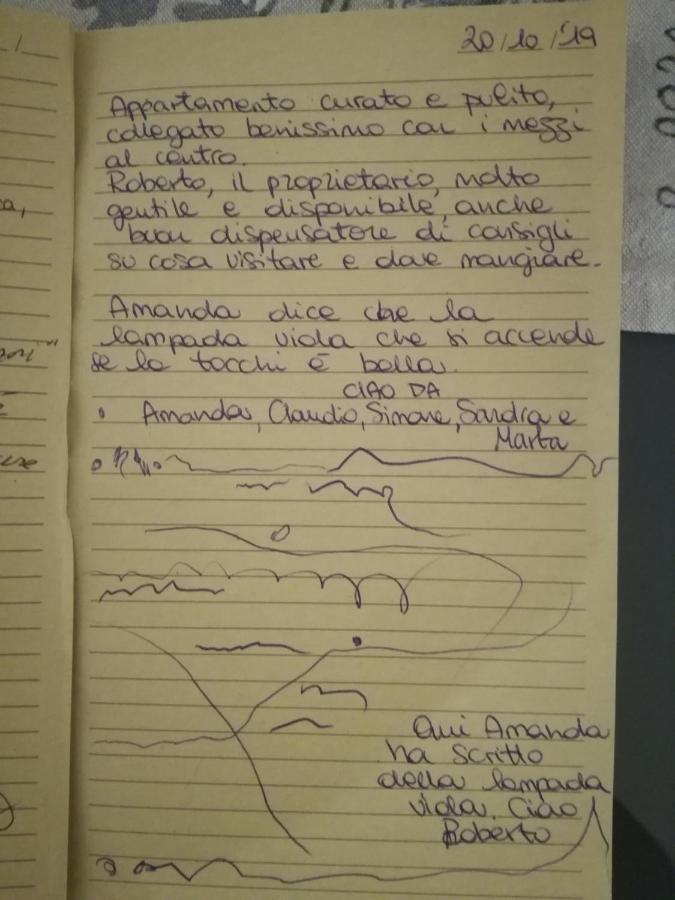 20/10/'19
Appartamento curato e pulito,
collegato benissimo con i mezzi
al centro.
Roberto, il proprietario, molto
gentile e disponibile, anche
buon dispensatore di consigli
su cosa visitare e dove mangiare.
Amanda dice che la
lampada viola che si accende
se la tocchi è bella.
CIAO DA
Amanda, Claudio, Simone, Sandra e
Marta
Qui Amanda
ha scritto
della lampada
viola. Ciao
Roberto